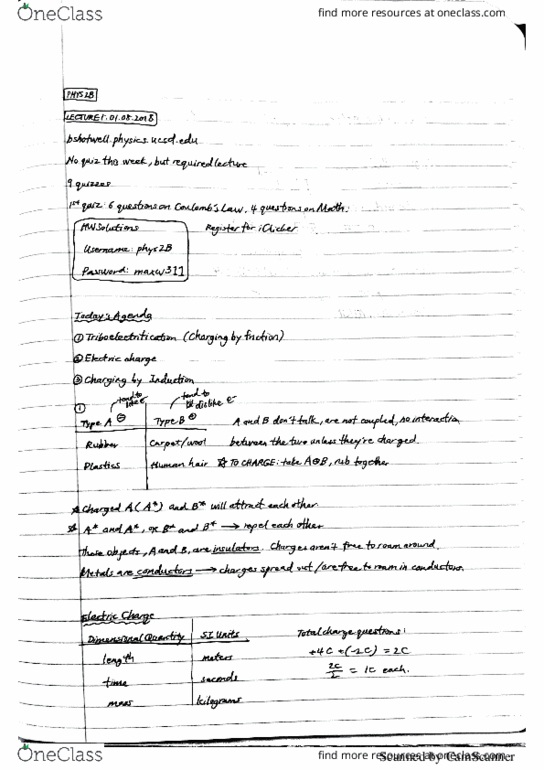 OneClass
find more resources at oneclass.com
PHYS 2B
LECTURE 1: 01.08.2018
bshotwell.physics.ucsd.edu
No quiz this week, but required lecture
9 quizzes
1st quiz: 6 questions on Coulomb's Law, 4 questions on Math.
HW Solutions
Register for iClicker
Username: phys2B
Password: maxw311
Today's Agenda
① Triboelectrification (Charging by friction)
② Electric charge
③ Charging by Induction
①
tend to like e⁻
tend to dislike e⁻
Type A ⊖ Type B ⊕ A and B don't talk, are not coupled, no interaction
Rubber Carpet/wool between the two unless they're charged.
Plastics Human hair ☆ TO CHARGE: take A⊕B, rub together
☆ Charged A (A*) and B* will attract each other
☆ A* and A*, or B* and B* → repel each other
These objects, A and B, are insulators. Charges aren't free to roam around.
Metals are conductors → charges spread out/are free to roam in conductors.
Electric Charge
Dimensional Quantity SI Units Total charge questions:
length meters +4C + (-2C) = 2C
time seconds 2C/2 = 1C each.
mass kilograms
OneClass
find more resources at oneclass.com
Scanned by CamScanner